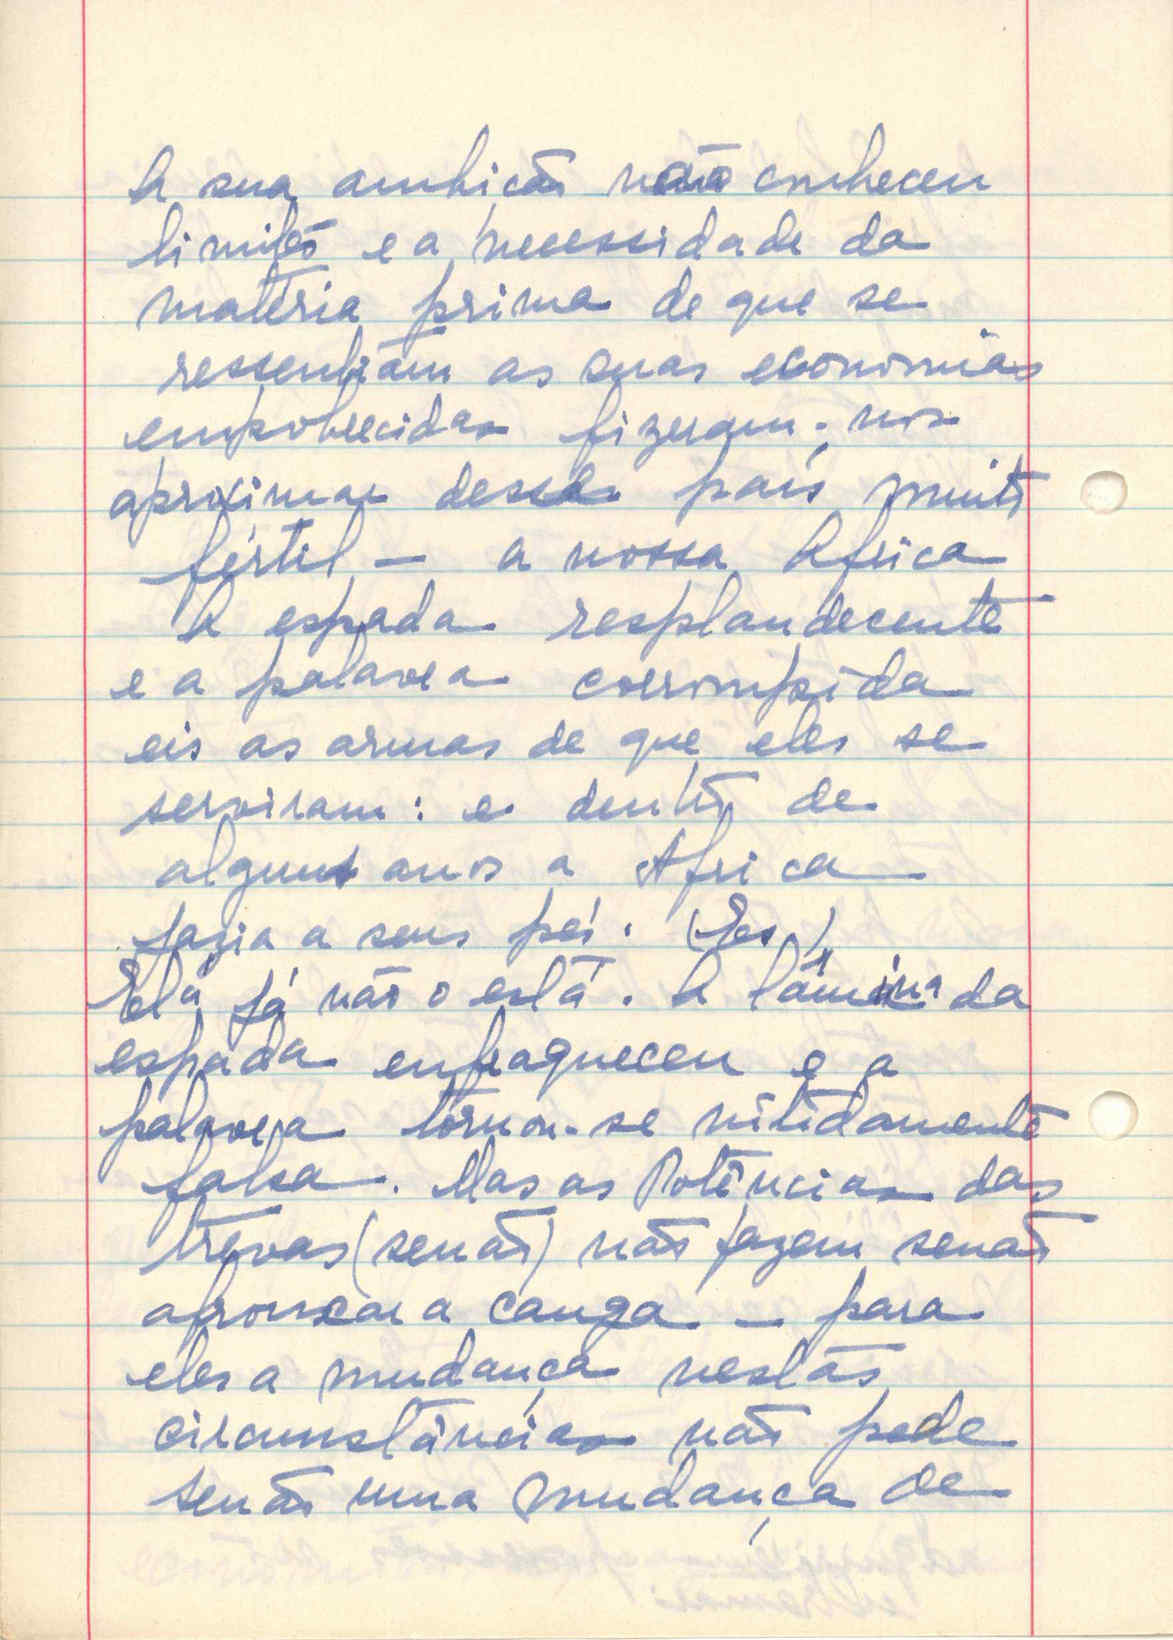 A sua ambição não conheceu
limites e a necessidade da
matéria prima de que se
ressentiam as suas economias
empobrecidas fizeram-nos
aproximar desse país muito
fértil — a nossa Africa
A espada resplandecente
e a palavra corrompida
eis as armas de que eles se
serviram: e dentro de
alguns anos a Africa
jazia a seus pés.
Ela já não o está. A lâmina da
espada enfraqueceu e a
palavra tornou-se nitidamente
falsa. Mas as Potências das
trevas (senão) não fazem senão
afrouxar a canga — para
eles a mudança nestas
circunstâncias não pode
senão uma mudança de